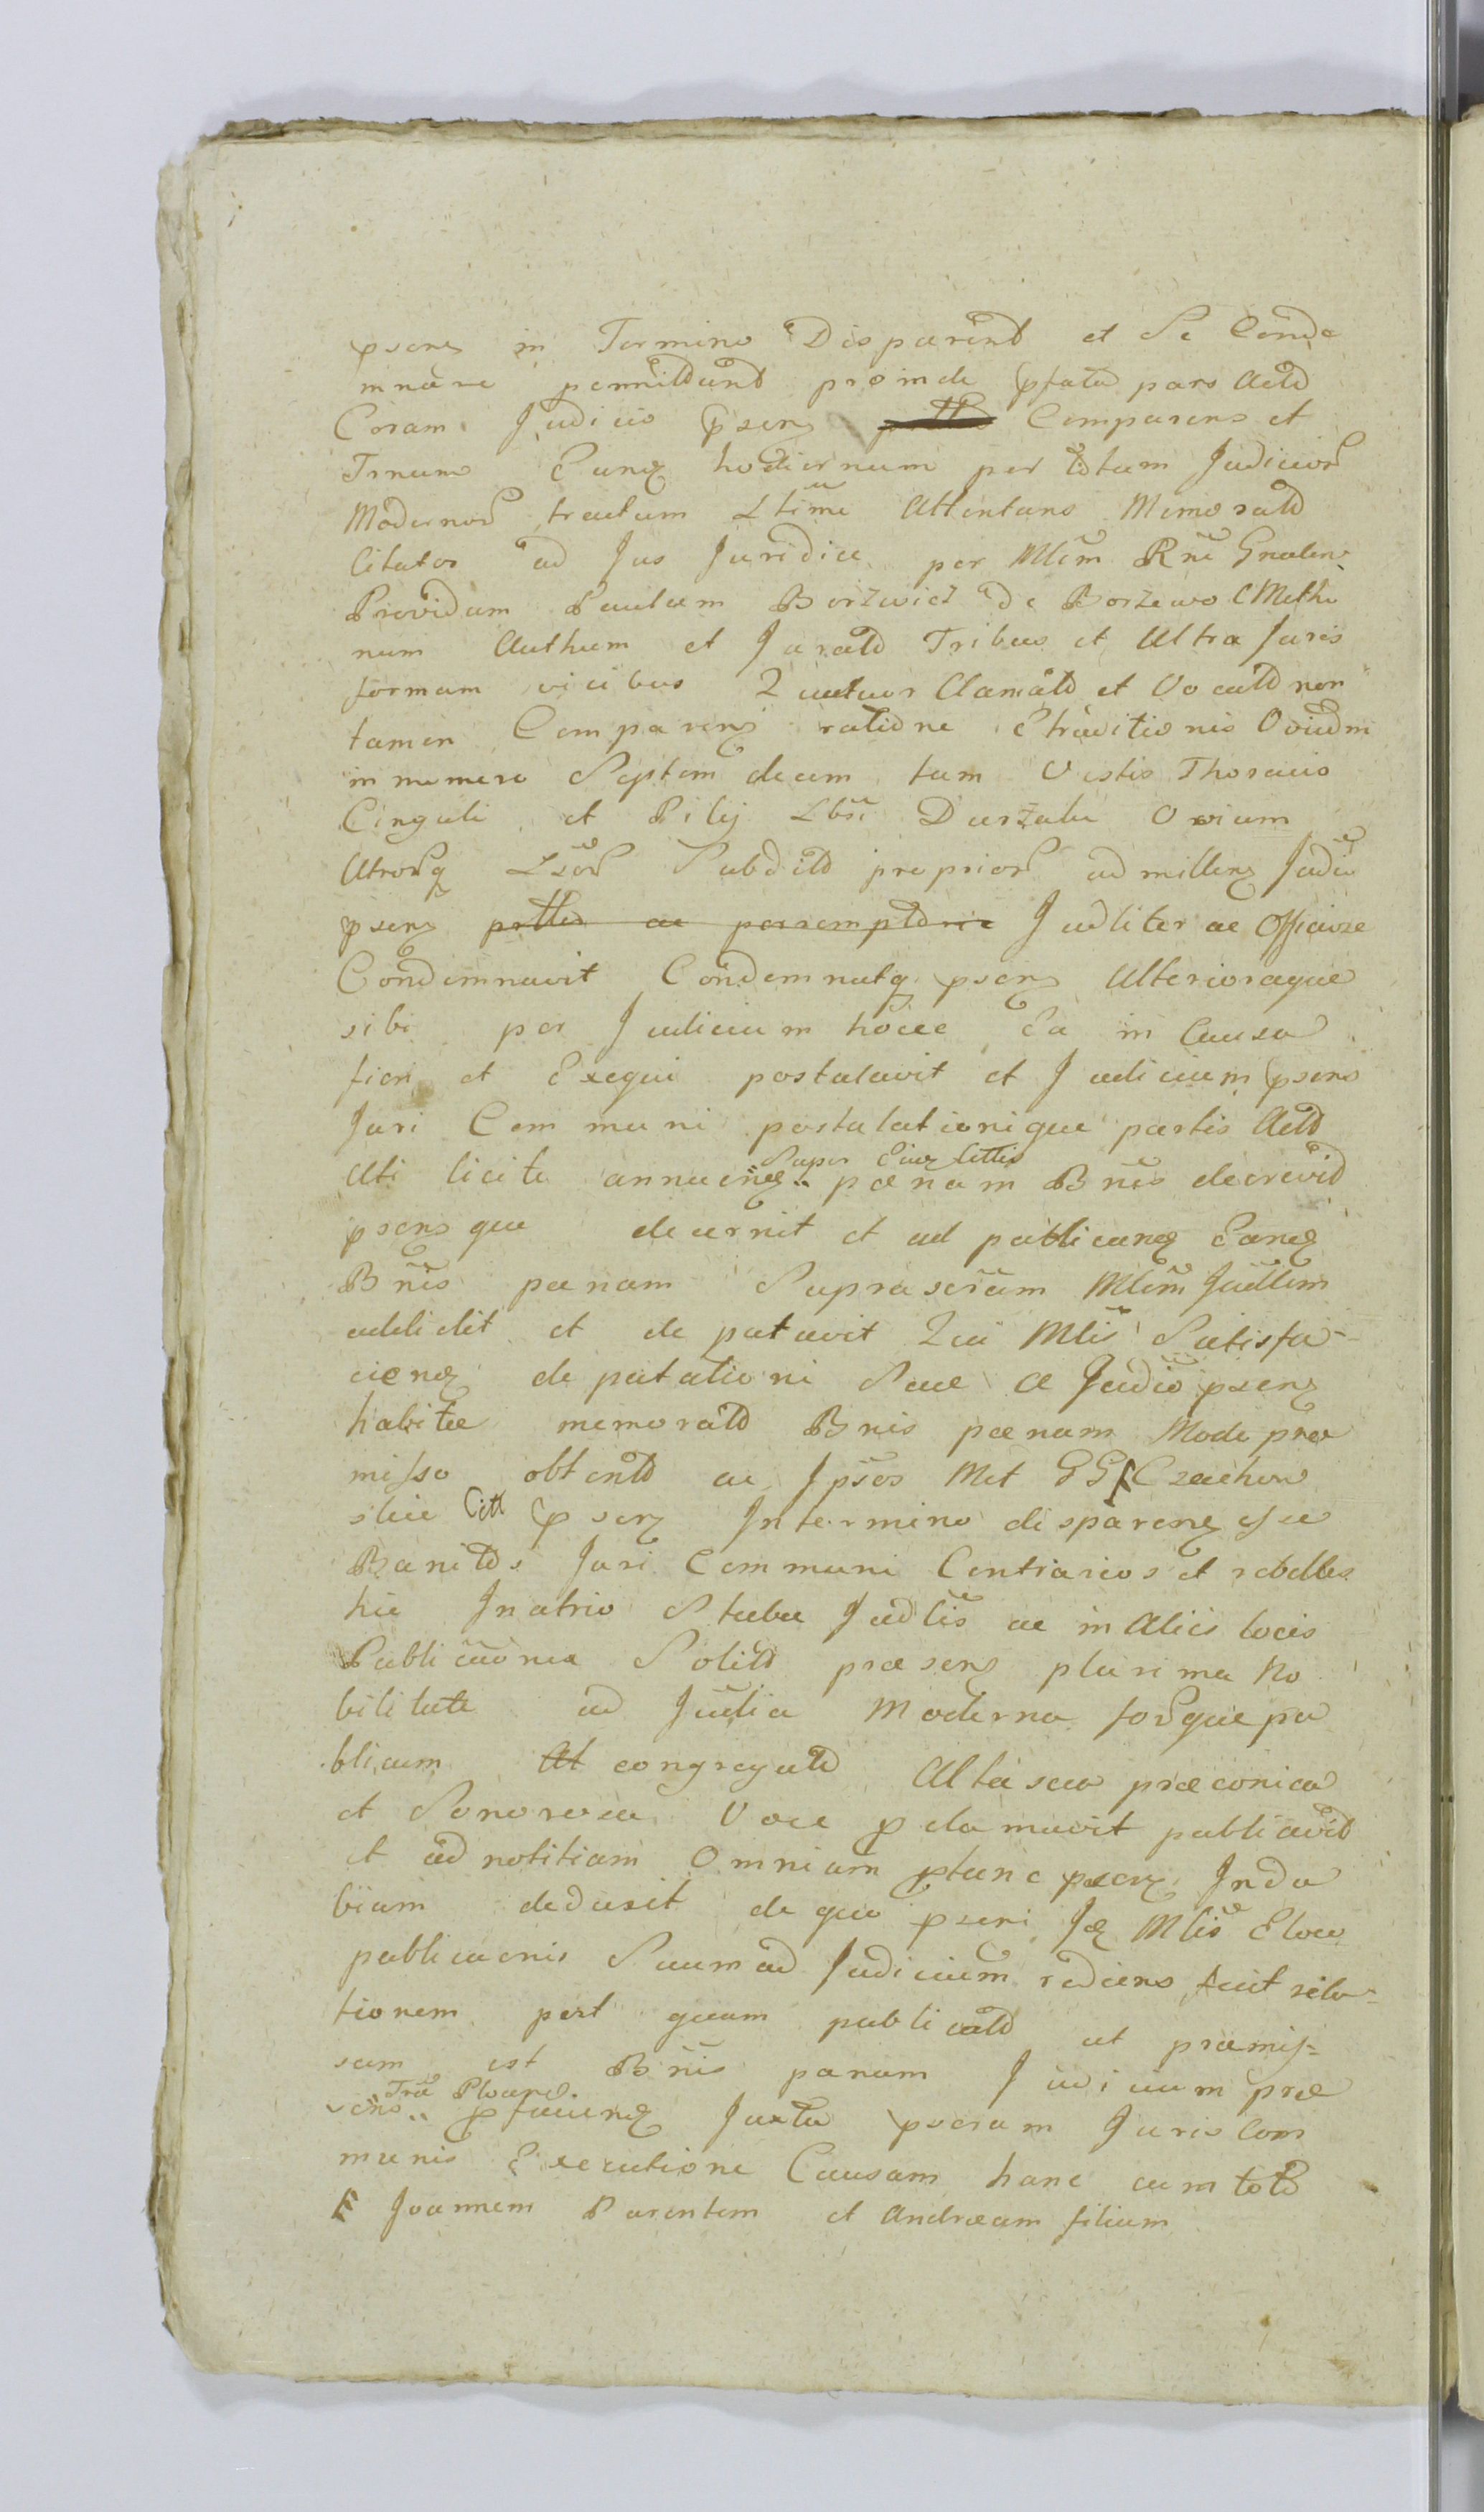 psens in Termino Disparend et Se Conde
mnare permittund proinde pfata pars Actd
Coram Judicio psens Comparens et
Trnum Eund hodiernum per totam Judicior
Modernor tractum Ltime Attentans Memoratd
Citatos ad Jus Juridice per Mlem Rni Gnalem
Providum Paulum Borzwicz de Borzewo CMetho
num Authum et Juratd Tribus et Ultra Juris
formam vicibus Quatuor Clamatd et Vocatd non
tamen Comparens ratione Extraditionis Ovium
in numero Septem decem tum Vestis Thoracis
Cinguli et Pilij Lbri Duszalu Ovium
Utrorq Lsor Subditd proprior admittens Judiu
psens prttes ac peremptorie Judliter ac Officiose
Condemnavit Condemnatq psens Ulterioraque
sibi per Judicium hocce Ea in Causa
fieri et Exequi postulavit et Judicium psens
Juri Communi postulationique partis Actd
Uti licite annuend Super Eius Cittis pœnam Bnis decrevid
psensque decernit et ad publicand Eand
Bnis pœnam Suprascriam Mlem Judlem
addidit et deputavit Qui Mlis Satisfa-
ciend deputationi Suæ a Judio psens
habitæ memoratd Bnis pœnam Modo præ
misso obtentd ac Ipsos Met GG Czachow
skie Citt psens In termino disparend esse
Banitos Juri Communi Contrarios et rebelles
hic In atrio Stubæ Judlis ac in Aliis locis
Publicuone Solitd præsens plurima No
bilitate ad Judia Moderna forque pu
blicum At congregatd Alta sua præconica
et Sonorosa Voce pclamavit publicavid
et ad notitiam Omnium ptunc psens Indu
bium deduxit de quo pseni Id Mlis Elocu
publicuonis Suum ad Judicium rediens fecit rela-
tionem post quam publicatd ut præmis-
sum est Bnis pœnam Judicium præ
sens Tra Pload. pfaciend Juxta pscram Juris Com
munis Executione Causam hanc cum totd
F Joannem Parentem et Andreeam filium